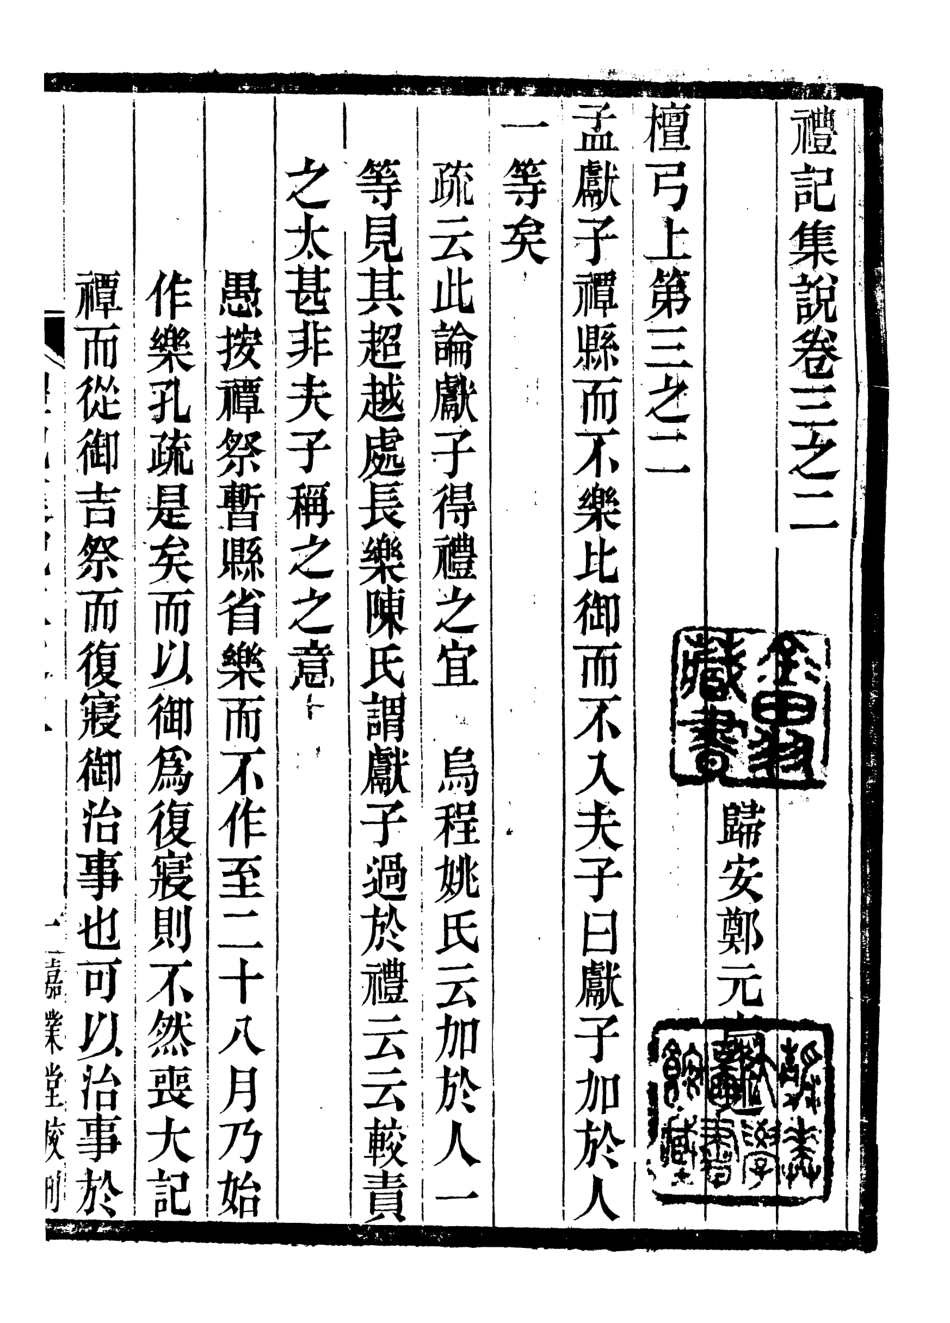 禮記集說卷三之二
歸安鄭元
檀弓上第三之二
孟獻子禫縣而不樂比御而不入夫子曰獻子加於人
一等矣
疏云此論獻子得禮之宜　烏程姚氏云加於人一
等見其超越處長樂陳氏謂獻子過於禮云云較責
之太甚非夫子稱之之意
愚按禫祭暫縣省樂而不作至二十八月乃始
作樂孔疏是矣而以御爲復寢則不然喪大記
禫而從御吉祭而復寢御治事也可以治事於
嘉業堂校刊
藏書